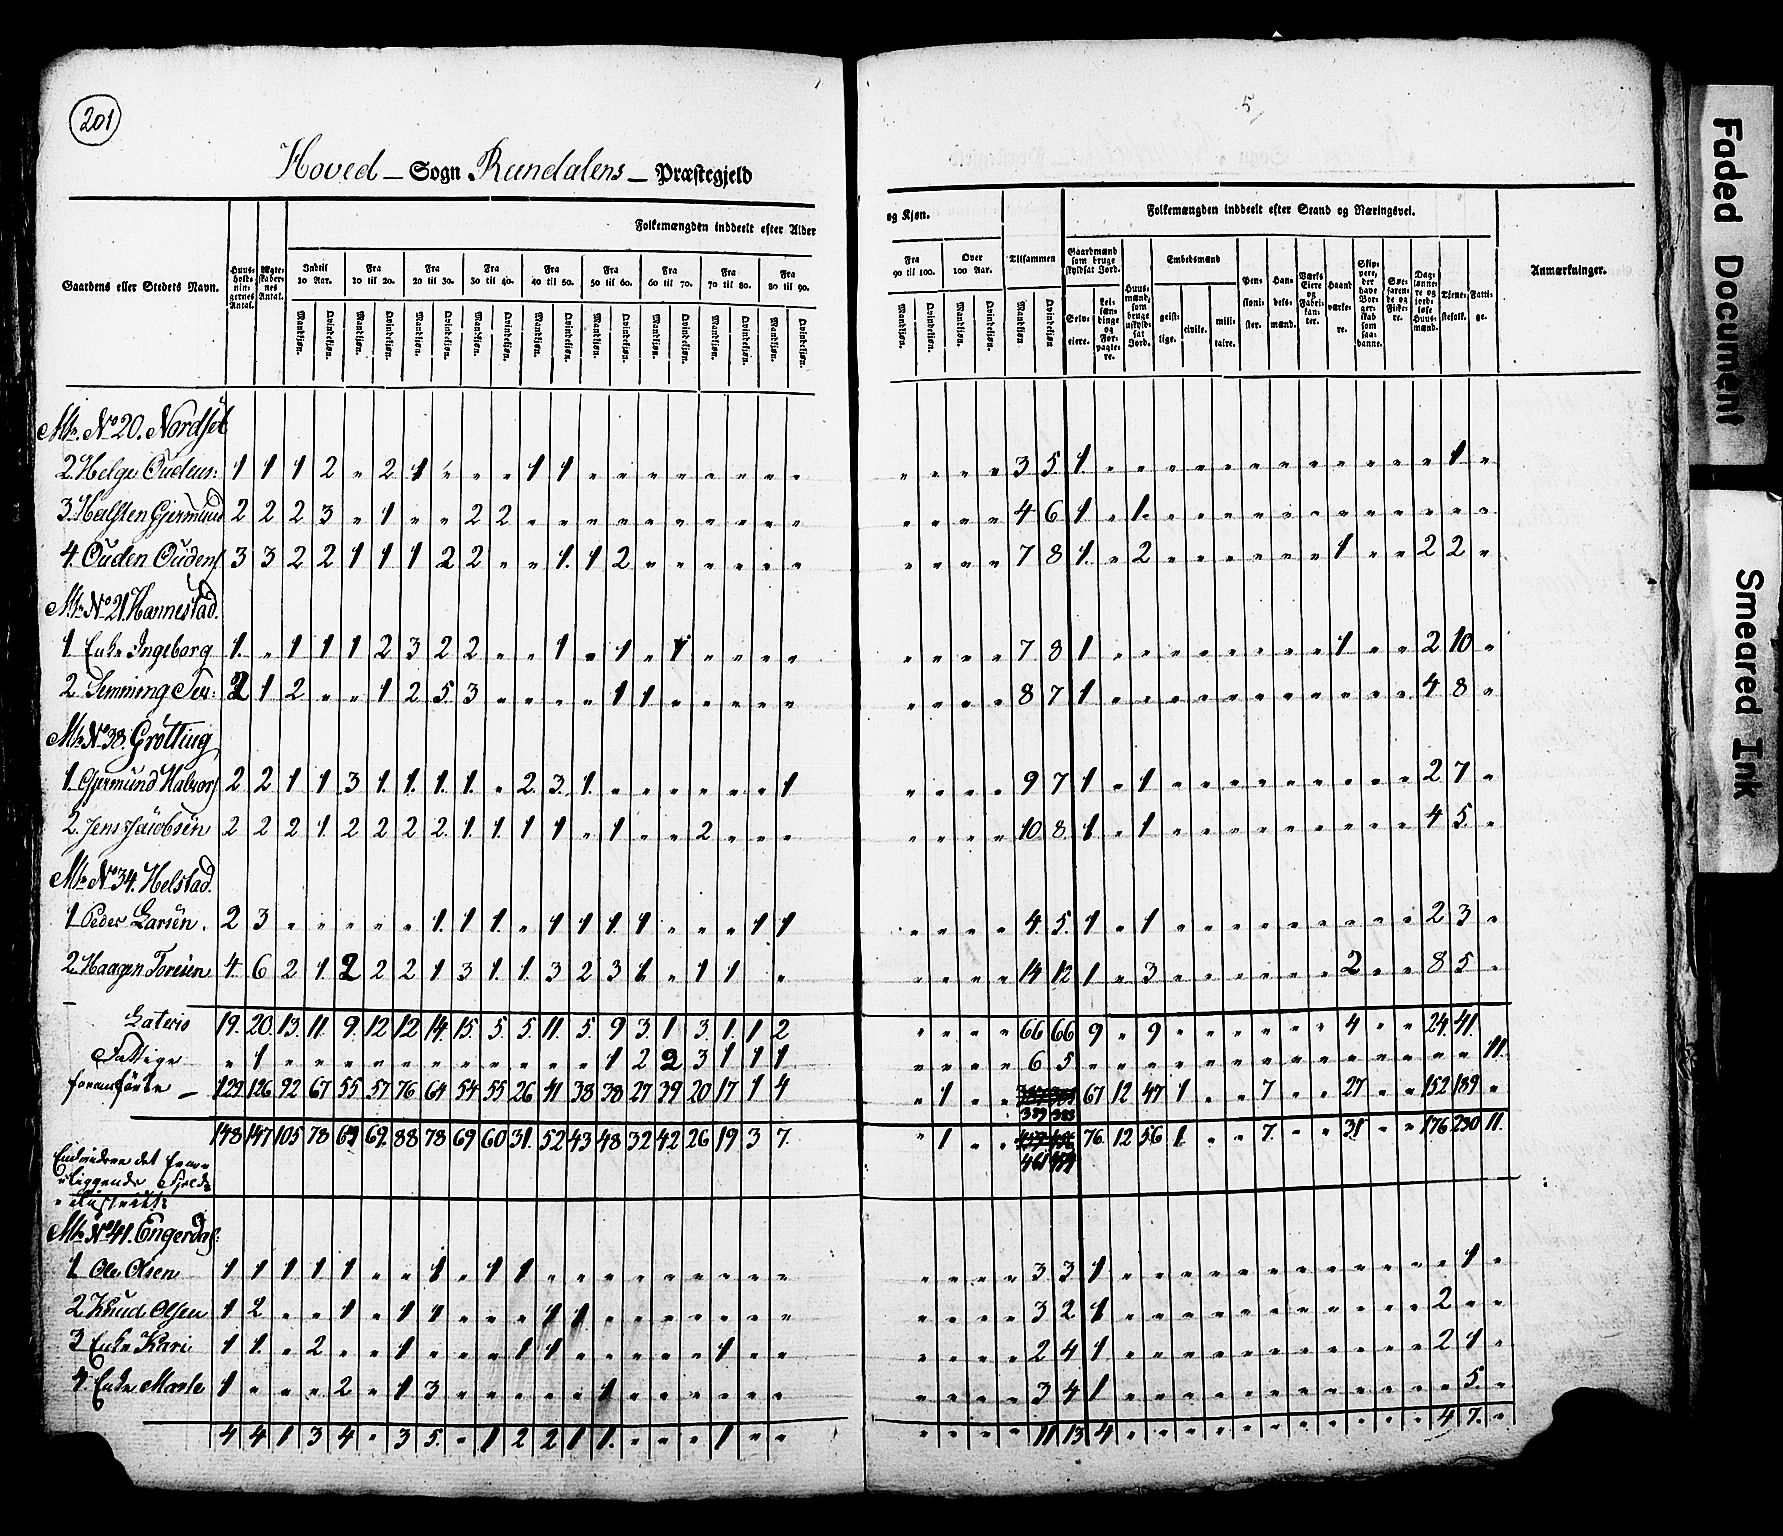 201
5
Hoved - Sogn Rendalens - Præstegjeld
Gaardens eller Stedets Navn.
Huusholdningernes Antal.
Ægteskabernes Antal.
Folkemængden inddeelt efter Alder og Kjøn.
Indtil 10 Aar.
Fra 10 til 20.
Fra 20 til 30.
Fra 30 til 40.
Fra 40 til 50.
Fra 50 til 60.
Fra 60 til 70.
Fra 70 til 80.
Fra 80 til 90.
Fra 90 til 100.
Over 100 Aar.
Tilsammen
Mandkjøn. Qvindekjøn.
Folkemængden inddeelt efter Stand og Næringsvei.
Gaardmænd som bruge skyldsat Jord.
Selveiere.
Leilændinge og Forpagtere.
Huusmænd, som bruge uskyldsat Jord.
Embedsmænd
geistlige.
civile.
militaire.
Pensionister.
Handelsmænd.
Værks Eiere og Fabrikanter.
Haandværkere.
Skippere, der have Borgerskab som saadanne.
Søefarende og Fiskere.
Daglønnere og jordløse Huusmænd.
Tjenestefolk.
Fattige.
Anmærkninger.
Mk. No 20. Nordset
2. Helge Oudens: 1 1 1 2 " 2 1 " " " 1 1 " " " " " " " " " " " " 3 5. 1 " " " " " " " " " " " " 1 "
3. Halsten Gjermund 2 2 2 3 " 1 " " 2 2 " " " " " " " " " " " " " " 4 6 1 " 1. " " " " " " " " " " " "
4. Ouden Oudens 3 3 2 2 1 1 1 2 2 " " 1. 1 2 " " " " " " " " " " 7 8 1. " 2 " " " " " " 1 " " 2 2 "
Mk No 21. Hannestad.
1 Enke Ingeborg 1. " 1 1 1 2 3 2 2 " " 1 " 1 " 1 " " " " " " " " 7 8 1 " " " " " " " " 1 " " 2 10 "
2. Simming Ter: 2 1 2 " " 1 2 5. 3 " " " " 1 1 " " " " " " " " " 8 7 1 " " " " " " " " " " " 4 8 "
Mk No 38. Grøtting
1. Gjermund Halvors 2 2 1 1 3 1. 1. 1. 1. " 2. 3. 1. " " " " " " 1 " " " " 9 7 1 " 1 " " " " " " " " " 2 7 "
2. Jens Jacobsen 2 2 2 1. 2 2 2 2. 1. 1. 1 1 " 1 " " 2 " " " " " " " 10 8 1 " 1 " " " " " " " " " 4 5. "
Mk No 34. Helstad.
1 Peder Larsen. 2 3 " " " " " 1. 1 1. " 1 1 1. 1 " " " 1 1 " " " " 4. 5. 1 " 1 " " " " " " " " " 2 3 "
2 Haagen Toresen 4. 6 2 1. 2 2 2 1 3 1. 1. 3 2 3 1 " 1 1 " " " " " 14 12 1 " 3 " " " " " " 2 " " 8 5 "
Lateris 19. 20. 13. 11. 9. 12 12 14. 15. 5. 5. 11. 5. 9 3. 1 3. 1. 1 2 " " " " 66 66 9 " 9 " " " " " " 4 " " 24. 41.
Fattige " 1 " " " " " " " " " " " 1 2 2 3 1 1 1 " " " " 6 5 " " " " " " " " " " " " " " 11.
foranførte - 129 126 92 67 55 57 76 64 54 55 26 41 38 38 27 39 20 17 1 4 " 1 " " 67 12 47 1 " " 7 " " 27 " " 152 189 "
389 388
148 147 105 78 69. 69. 88 78 69 60 31. 52 43 48 32 42 26 19 3 7. " 1 " " 76. 12 56 1. " " 7. " " 31 " " 176 230 11.
461 459
Endvidere det
liggende Fjeld
Distrikt:
Mk No 41. Engerdal:
1 Ole Olsen 1 1 1 1 1 " " 1 " 1 1 " " " " " " " " " " " " " 3 3 1 " " " " " " " " " " " " 1 "
2 Knud Olsen 1 2 " " 1 " 1 1 " " " 1 1 " " " " " " " " " " " 3 2 1 " " " " " " " " " " " 2 " "
3 Enke Kari 1 1. " 2 " " 1 " " " 1 1 " " " " " 1 " " " " " " 2 4 1 " " " " " " " " " " " 2 1 "
4. Enke Marte 1 " " " 2 " 1 3 " " " " " 1 " " " " " " " " " " 3 4 1 " " " " " " " " " " " " 5. "
4 4 1 3 4 " 3 5. " 1 2 2 1 1. " " " 1 " " " " " " 11 13 4 " " " " " " " " " " " 4 7. "
Faded Document
Smeared Ink